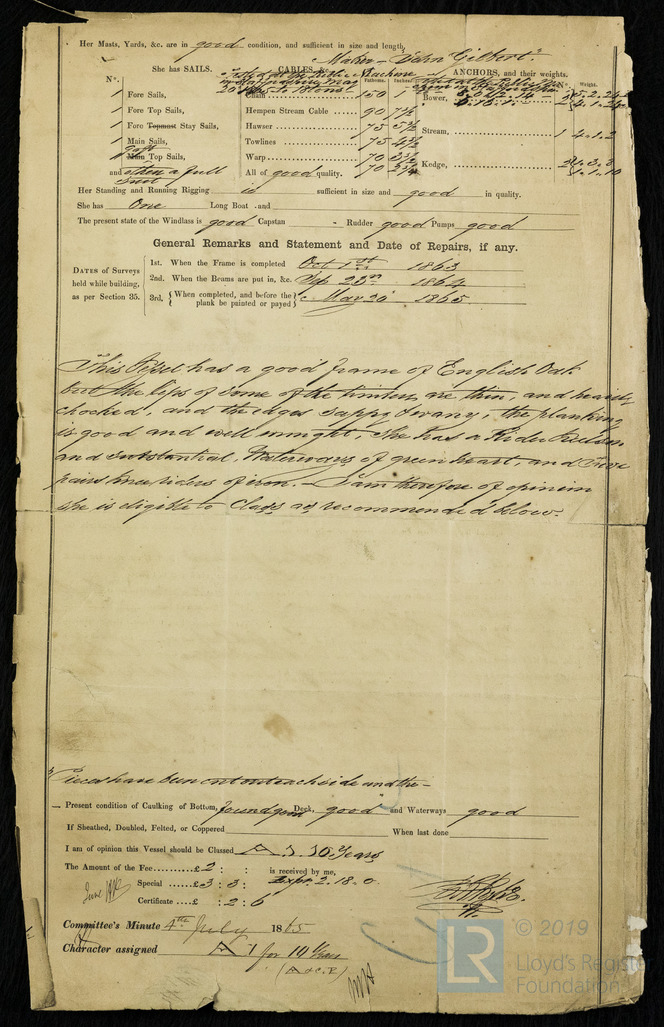 Her Masts, Yards, &c. are in good condition, and sufficient in size and length,
Maker - John Gilbert
She has SAILS. CABLES, &c. ANCHORS, and their weights.
N°. Fathoms. Inches. N°. Weight.
1 Fore Sails, Chain 150 Bower,
1 Fore Top Sails, Hempen Stream Cable 90 7½
1 Fore Topmast Stay Sails, Hawser 75 5½ Stream, 1 4.1.2
1 Main Sails, Towlines 75 4½
1 Gaff Main Top Sails, Warp 70 3½ Kedge,
and then a full suit All of good quality. 70
Her Standing and Running Rigging is sufficient in size and good in quality.
She has One Long Boat and
The present state of the Windlass is good Capstan - Rudder good Pumps good
General Remarks and Statement and Date of Repairs, if any.
DATES of Surveys held while building, as per Section 35.
1st. When the Frame is completed Oct 1st 1863
2nd. When the Beams are put in, &c. Sep 23rd 1864
3rd. { When completed, and before the plank be painted or payed } May 30 1865
This Vessel has a good frame of English Oak
but the lips of some of the timbers are thin, and
chocked, and the edges sappy & wany, the planking
is good and well wrought, she has a Rider Keelson
and substantial, Waterways of greenheart, and Five
pairs knee riders of iron. - I am therefore of opinion
she is eligible to Class as recommended below.
Pieces have been cut out each side and the -
Present condition of Caulking of Bottom, found good Deck, good and Waterways good
If Sheathed, Doubled, Felted, or Coppered When last done
I am of opinion this Vessel should be Classed A 1 10 Years
The Amount of the Fee £2 : : is received by me,
Special £3 : 3 : Expt. 2.18.0
Certificate : 2 : 6
Committee's Minute 4th July 1865
Character assigned A 1 for 10 Years
(A & C.P.)
© 2019
LR
Lloyd's Register
Foundation